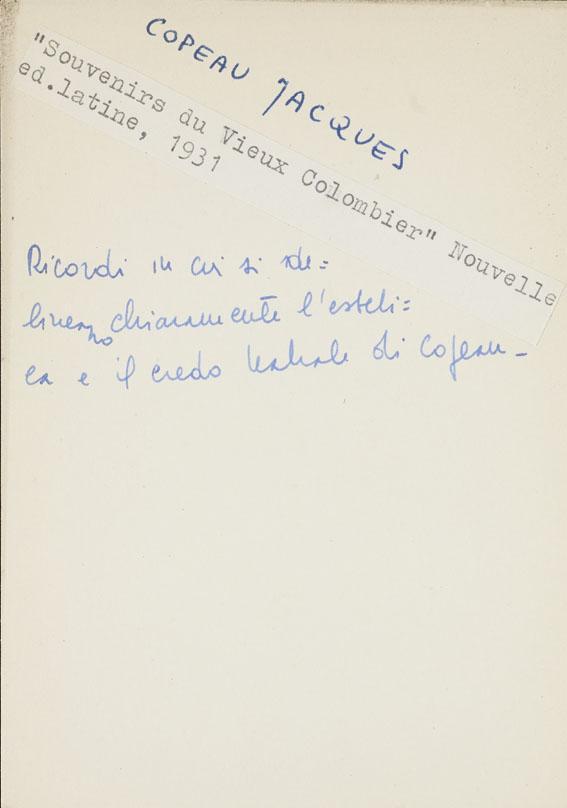 COPEAU JACQUES
"Souvenirs du Vieux Colombier" Nouvelle
ed.latine, 1931
Ricordi in cui si sde=
lineano chiaramente l'esteti=
ca e il credo teatrale di Copeau -